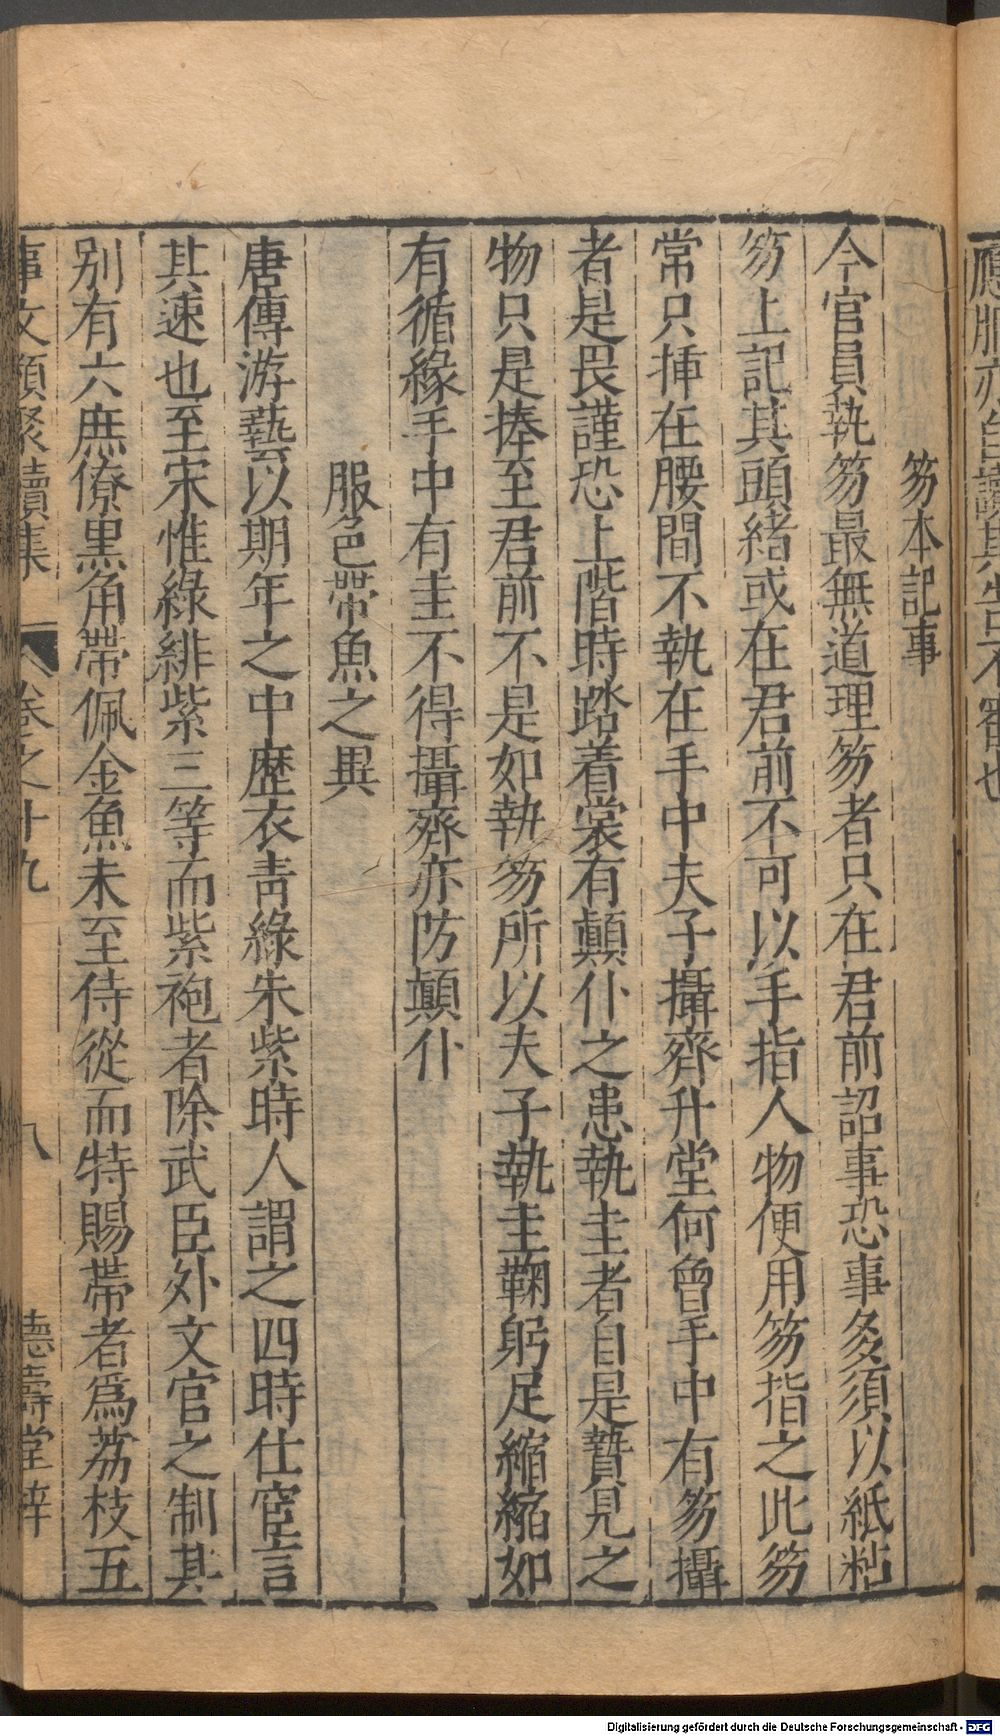 應服亦
也
笏本記事
今官員執笏最無道理笏者只在君前詔事恐事多須以紙粘
笏上記其頭緒或在君前不可以手指人物便用笏指之此笏
常只揷在腰間不執在手中夫子攝齊升堂何曾手中有笏攝
者是畏謹恐上階時踏着裳有顛仆之患執圭者自是贄見之
物只是捧至君前不是如執笏所以夫子執圭鞠躬足縮縮如
有循緣手中有圭不得攝齊亦防顛仆
服色帶魚之異
唐傳游藝以期年之中歷衣青綠朱紫時人謂之四時仕宦言
其速也至宋惟綠緋紫三等而紫袍者除武臣外文官之制其
别有六庶僚黑角帶佩金魚未至侍從而特賜帶者爲荔枝五
事文類聚續集 卷之十九 八 德壽堂梓
Digitalisierung gefördert durch die Deutsche Forschungsgemeinschaft - DFG